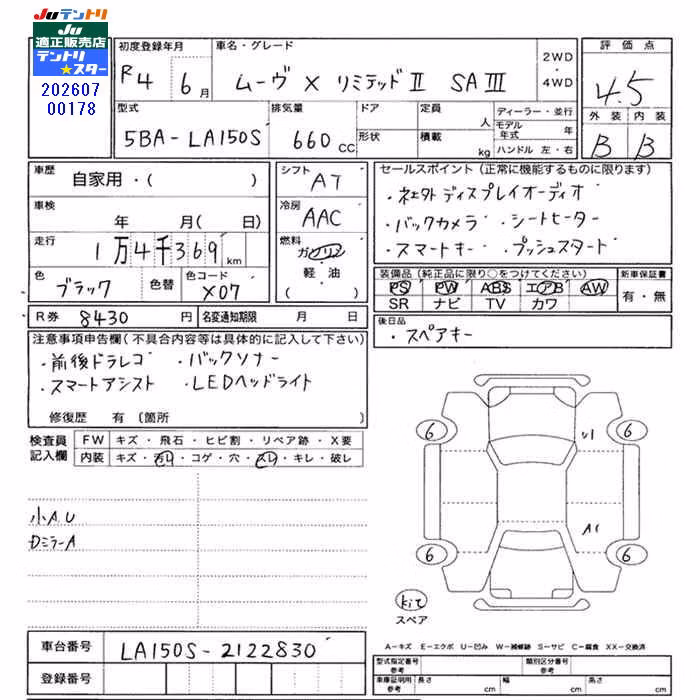 JUテントリ
JU
適正販売店
テントリ
★スター
202607
00178
初度登録年月
R4 6月
車名・グレード
ムーヴ X リミテッドⅡ SAⅢ
2WD
・
4WD
評価点
4.5
外装 内装
B B
型式
5BA-LA150S
排気量
660 CC
ドア
形状
定員 人
積載 kg
ディーラー・並行
モデル年式 年
ハンドル 左・右
車歴
自家用・( )
車検
年 月( 日)
走行
1万4千369km
色
ブラック
色替
色コード
X07
シフト
AT
冷房
AAC
燃料
ガソリン
軽・油
( )
セールスポイント(正常に機能するものに限ります)
・社外ディスプレイオーディオ
・バックカメラ ・シートヒーター
・スマートキー ・プッシュスタート
装備品(純正品に限り○をつけてください)
PS PW ABS エアB AW
SR ナビ TV カワ
新車保証書
有・無
R券 8430円
名変通知期限 月 日
後日品
・スペアキー
注意事項申告欄(不具合内容等は具体的に記入して下さい)
・前後ドラレコ ・バックソナー
・スマートアシスト ・LEDヘッドライト
修復歴 有(箇所 )
検査員
記入欄
FW キズ・飛石・ヒビ割・リペア跡・X要
内装 キズ・汚レ・コゲ・穴・スレ・キレ・破レ
小A.U
DミラーA
6 6
U1
A1
6 6
kit
スペア
車台番号
LA150S-2122830
登録番号
A-キズ E-エクボ U-凹み W-補修跡 S-サビ C-腐食 XX-交換済
型式指定番号
参考
類別区分番号
参考
車庫証明用
参考
長さ cm
幅 cm
高さ cm